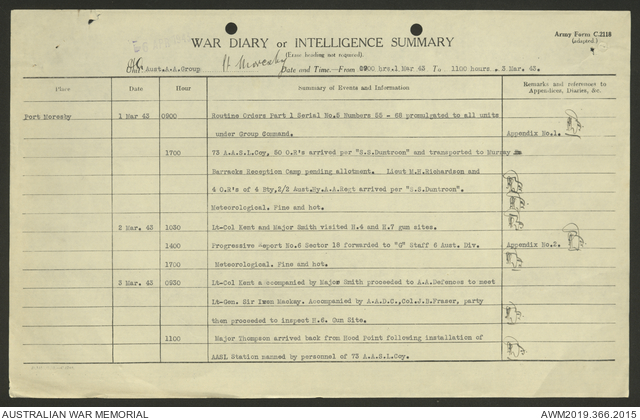 Army Form C.2118
(adapted.)
WAR DIARY or INTELLIGENCE SUMMARY
(Erase heading not required).
Unit Aust.A.A.Group Pt Moresby Date and Time.—From 0900 hrs.1 Mar 43 To 1100 hours . 3 Mar. 43.
Place Date Hour Summary of Events and Information Remarks and references to Appendices, Diaries, &c.
Port Moresby 1 Mar 43 0900 Routine Orders Part 1 Serial No.5 Numbers 55 - 68 promulgated to all units
under Group Command. Appendix No.1.
1700 73 A.A.S.L.Coy, 50 O.R's arrived per "S.S.Duntroon" and transported to Murray
Barracks Reception Camp pending allotment. Lieut M.H.Richardson and
4 O.R's of 4 Bty,2/2 Aust.Hy.A.A.Regt arrived per "S.S.Duntroon".
Meteorological. Fine and hot.
2 Mar. 43 1030 Lt-Col Kent and Major Smith visited H.4 and H.7 gun sites.
1400 Progressive Report No.6 Sector 18 forwarded to "G" Staff 6 Aust. Div. Appendix No.2.
1700 Meteorological. Fine and hot.
3 Mar. 43 0930 Lt-Col Kent a accompanied by Major Smith proceeded to A.A.Defences to meet
Lt-Gen. Sir Iwen Mackay. Accompanied by A.A.D.C.,Col.J.B.Fraser, party
then proceeded to inspect H.6. Gun Site.
1100 Major Thompson arrived back from Hood Point following installation of
AASL Station manned by personnel of 73 A.A.S.L.Coy.
AUSTRALIAN WAR MEMORIAL AWM2019.366.2015